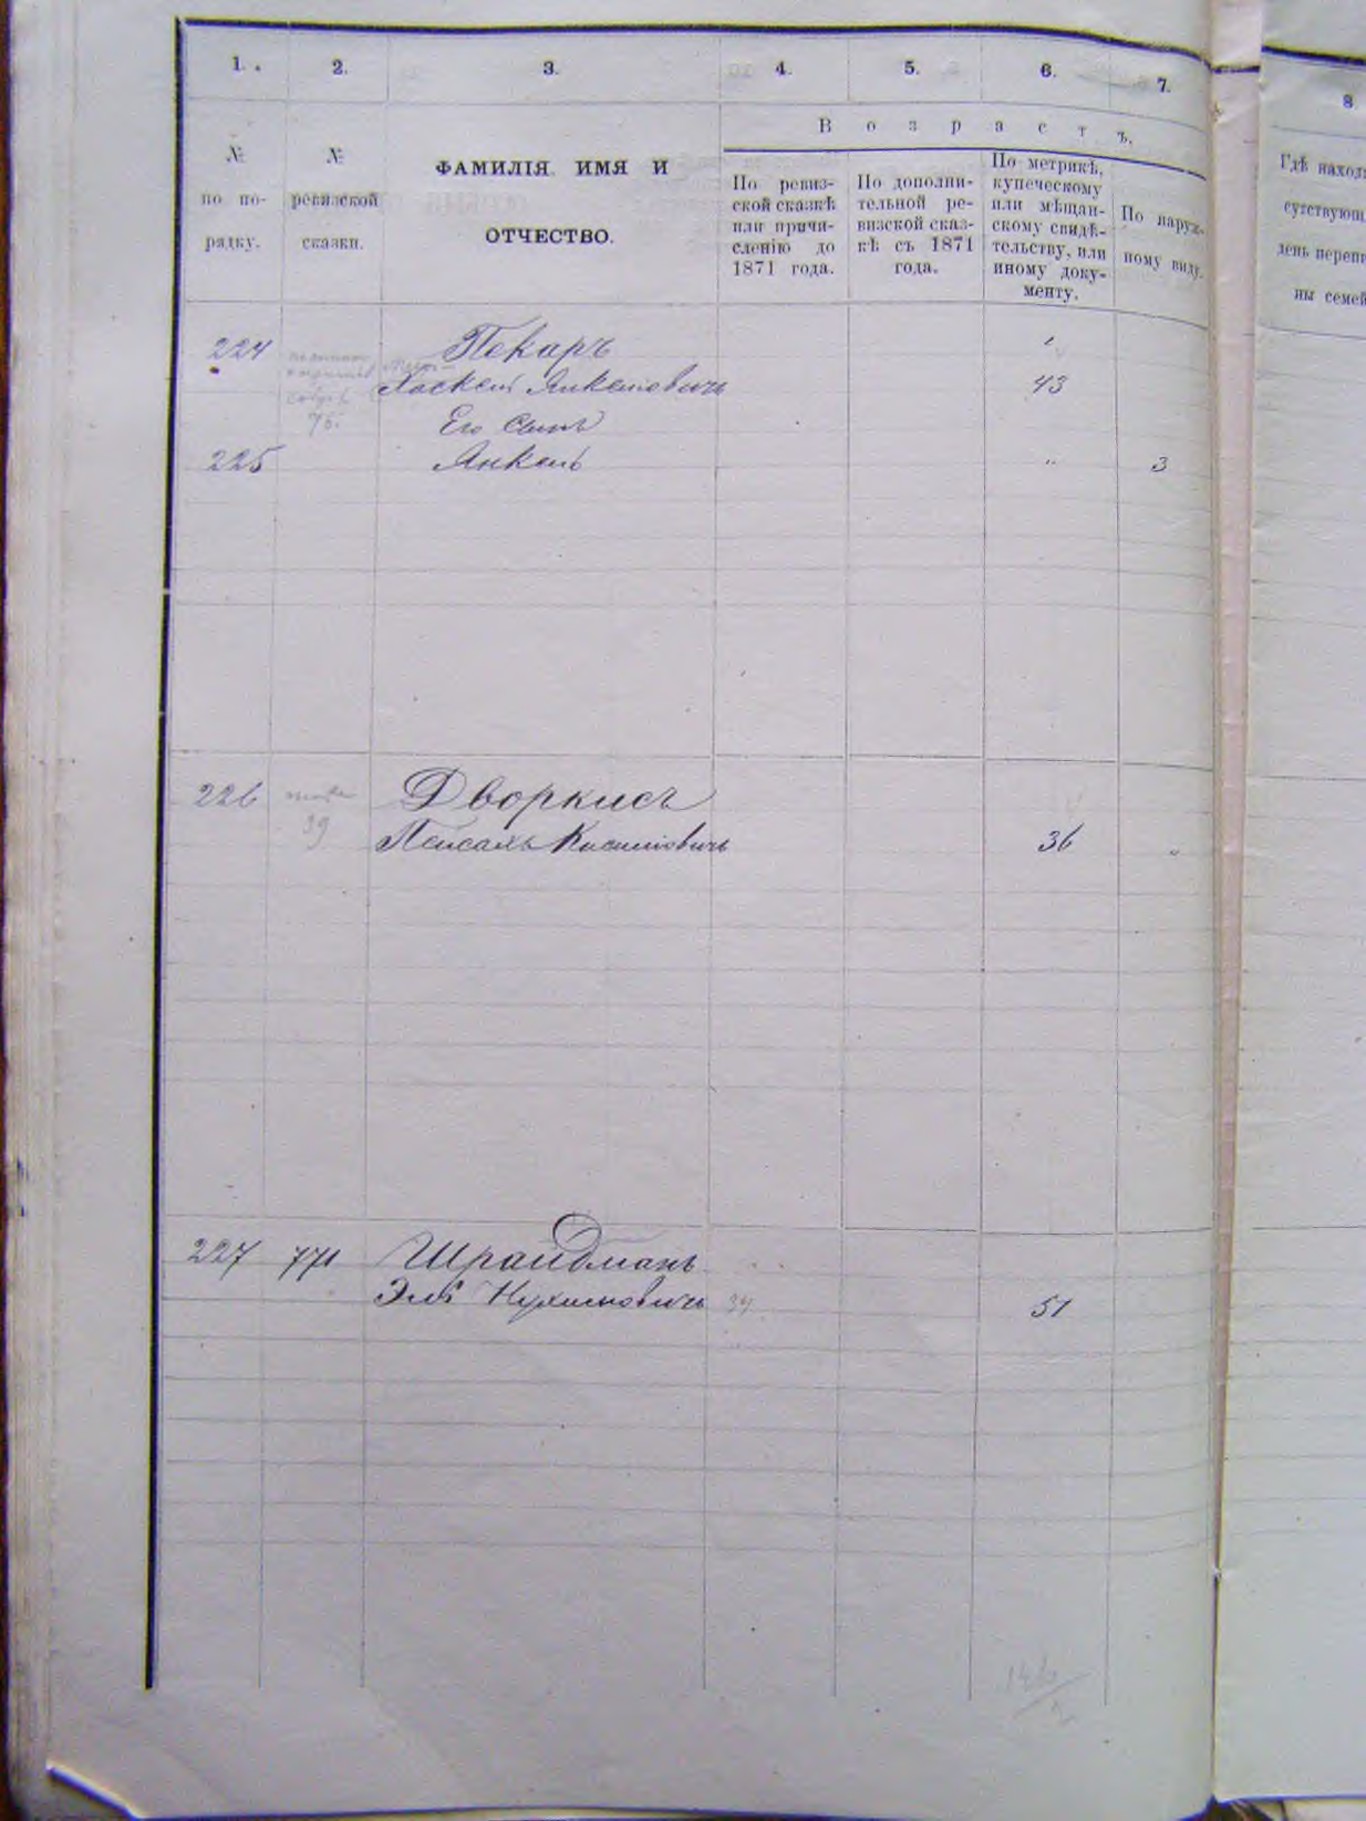 1. 2. 3. 4. 5. 6. 7.
В о з р а с т ъ.
№
по по-
рядку.
№
ревизской
сказки.
ФАМИЛІЯ ИМЯ И
ОТЧЕСТВО.
По ревиз-
ской сказкѣ
или причи-
сленію до
1871 года.
По дополни-
тельной ре-
визской сказ-
кѣ съ 1871
года.
По метрикѣ,
купеческому
или мѣщан-
скому свидѣ-
тельству, или
иному доку-
менту.
По наруж-
ному виду.
224 Пекаръ
Хаскель Янкелевичъ 43
75.
Его сынъ
225 Янкель " 3
226 Дворкисъ
39 Пейсахъ 36 "
227 771 Шрайдманъ
Эль Нухимовичъ 34 51
146
2
8
Гдѣ наход
сутствующ
день переп
ны семей